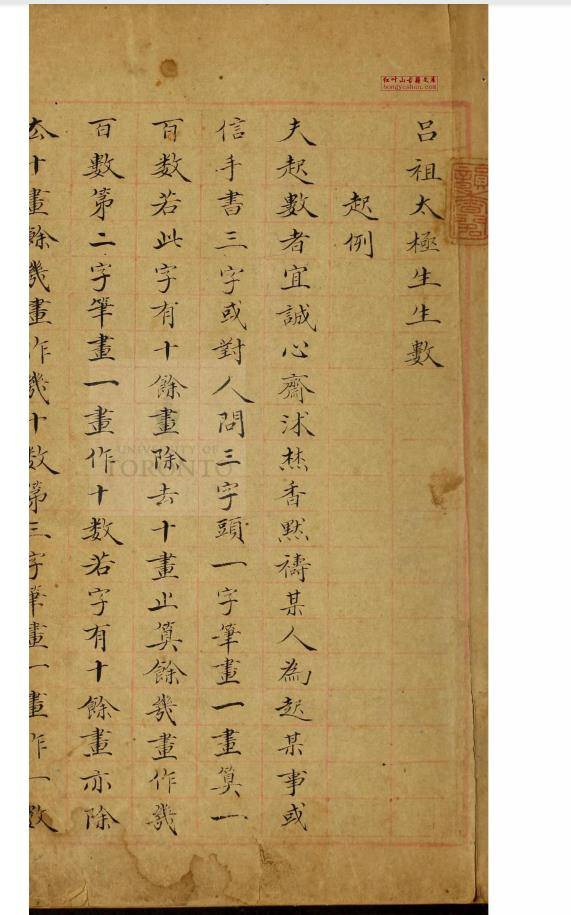 呂祖太極生生數
起例
夫起數者宜誠心齋沭焚香默禱某人為起某事或
信手書三字或對人問三字頭一字筆畫一畫算一
百数若此字有十餘畫除去十畫止算餘幾畫作幾
百數第二字筆畫一畫作十數若字有十餘畫亦除
去十畫餘幾畫作幾十数第三字筆畫一畫作一数
红叶山古籍文库
hongyeshan.com
UNIVERSITY OF
TORONTO